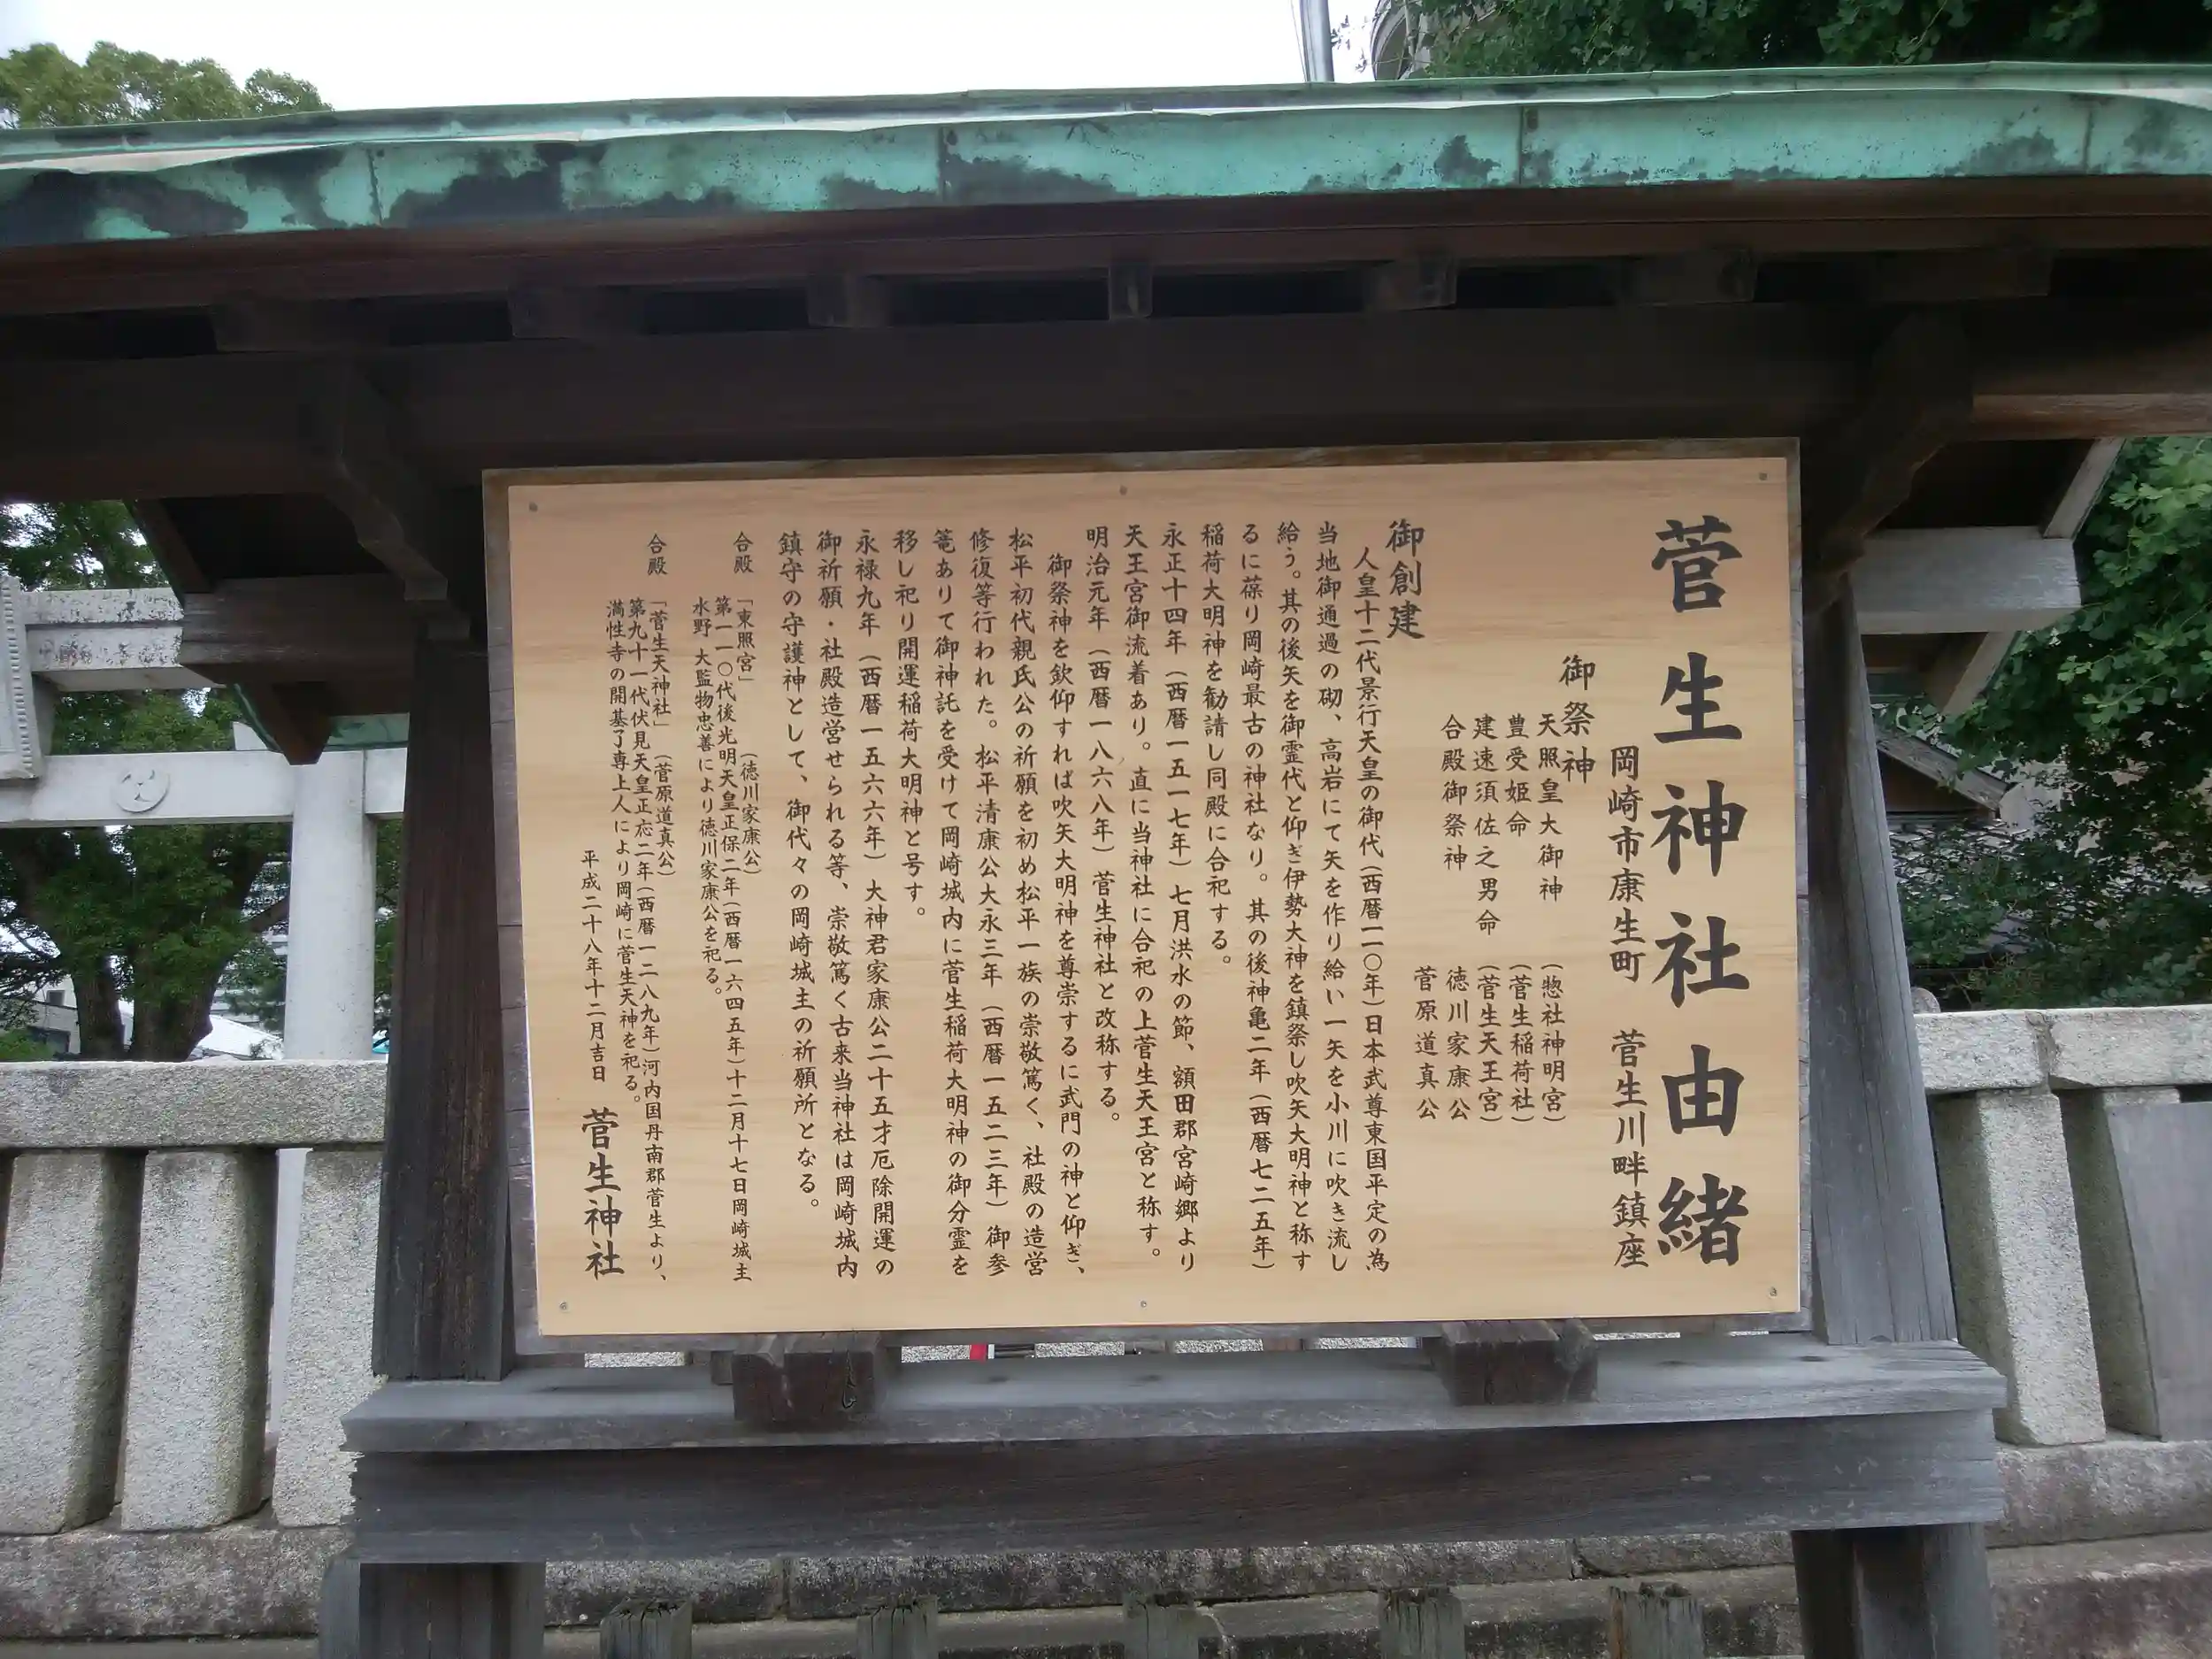 菅生神社由緒
岡崎市康生町　菅生川畔鎮座
御祭神
天照皇大御神　（惣社神明宮）
豊受姫命　（菅生稲荷社）
建速須佐之男命　（菅生天王宮）
合殿御祭神　徳川家康公
菅原道真公
御創建
人皇十二代景行天皇の御代（西暦一一〇年）日本武尊東国平定の為
当地御通過の砌、高岩にて矢を作り給い一矢を小川に吹き流し
給う。其の後矢を御霊代と仰ぎ伊勢大神を鎮祭し吹矢大明神と称す
るに葆り岡崎最古の神社なり。其の後神亀二年（西暦七二五年）
稲荷大明神を勧請し同殿に合祀する。
永正十四年（西暦一五一七年）七月洪水の節、額田郡宮崎郷より
天王宮御流着あり。直に当神社に合祀の上菅生天王宮と称す。
明治元年（西暦一八六八年）菅生神社と改称する。
御祭神を欽仰すれば吹矢大明神を尊崇するに武門の神と仰ぎ、
松平初代親氏公の祈願を初め松平一族の崇敬篤く、社殿の造営
修復等行われた。松平清康公大永三年（西暦一五二三年）御参
篭ありて御神託を受けて岡崎城内に菅生稲荷大明神の御分霊を
移し祀り開運稲荷大明神と号す。
永禄九年（西暦一五六六年）大神君家康公二十五才厄除開運の
御祈願・社殿造営せられる等、崇敬篤く古来当神社は岡崎城内
鎮守の守護神として、御代々の岡崎城主の祈願所となる。
合殿　「東照宮」　（徳川家康公）
第一一〇代後光明天皇正保二年（西暦一六四五年）十二月十七日岡崎城主
水野大監物忠善により徳川家康公を祀る。
合殿　「菅生天神社」　（菅原道真公）
第九十一代伏見天皇正応二年（西暦一二八九年）河内国丹南郡菅生より、
満性寺の開基了専上人により岡崎に菅生天神を祀る。
平成二十八年十二月吉日　菅生神社